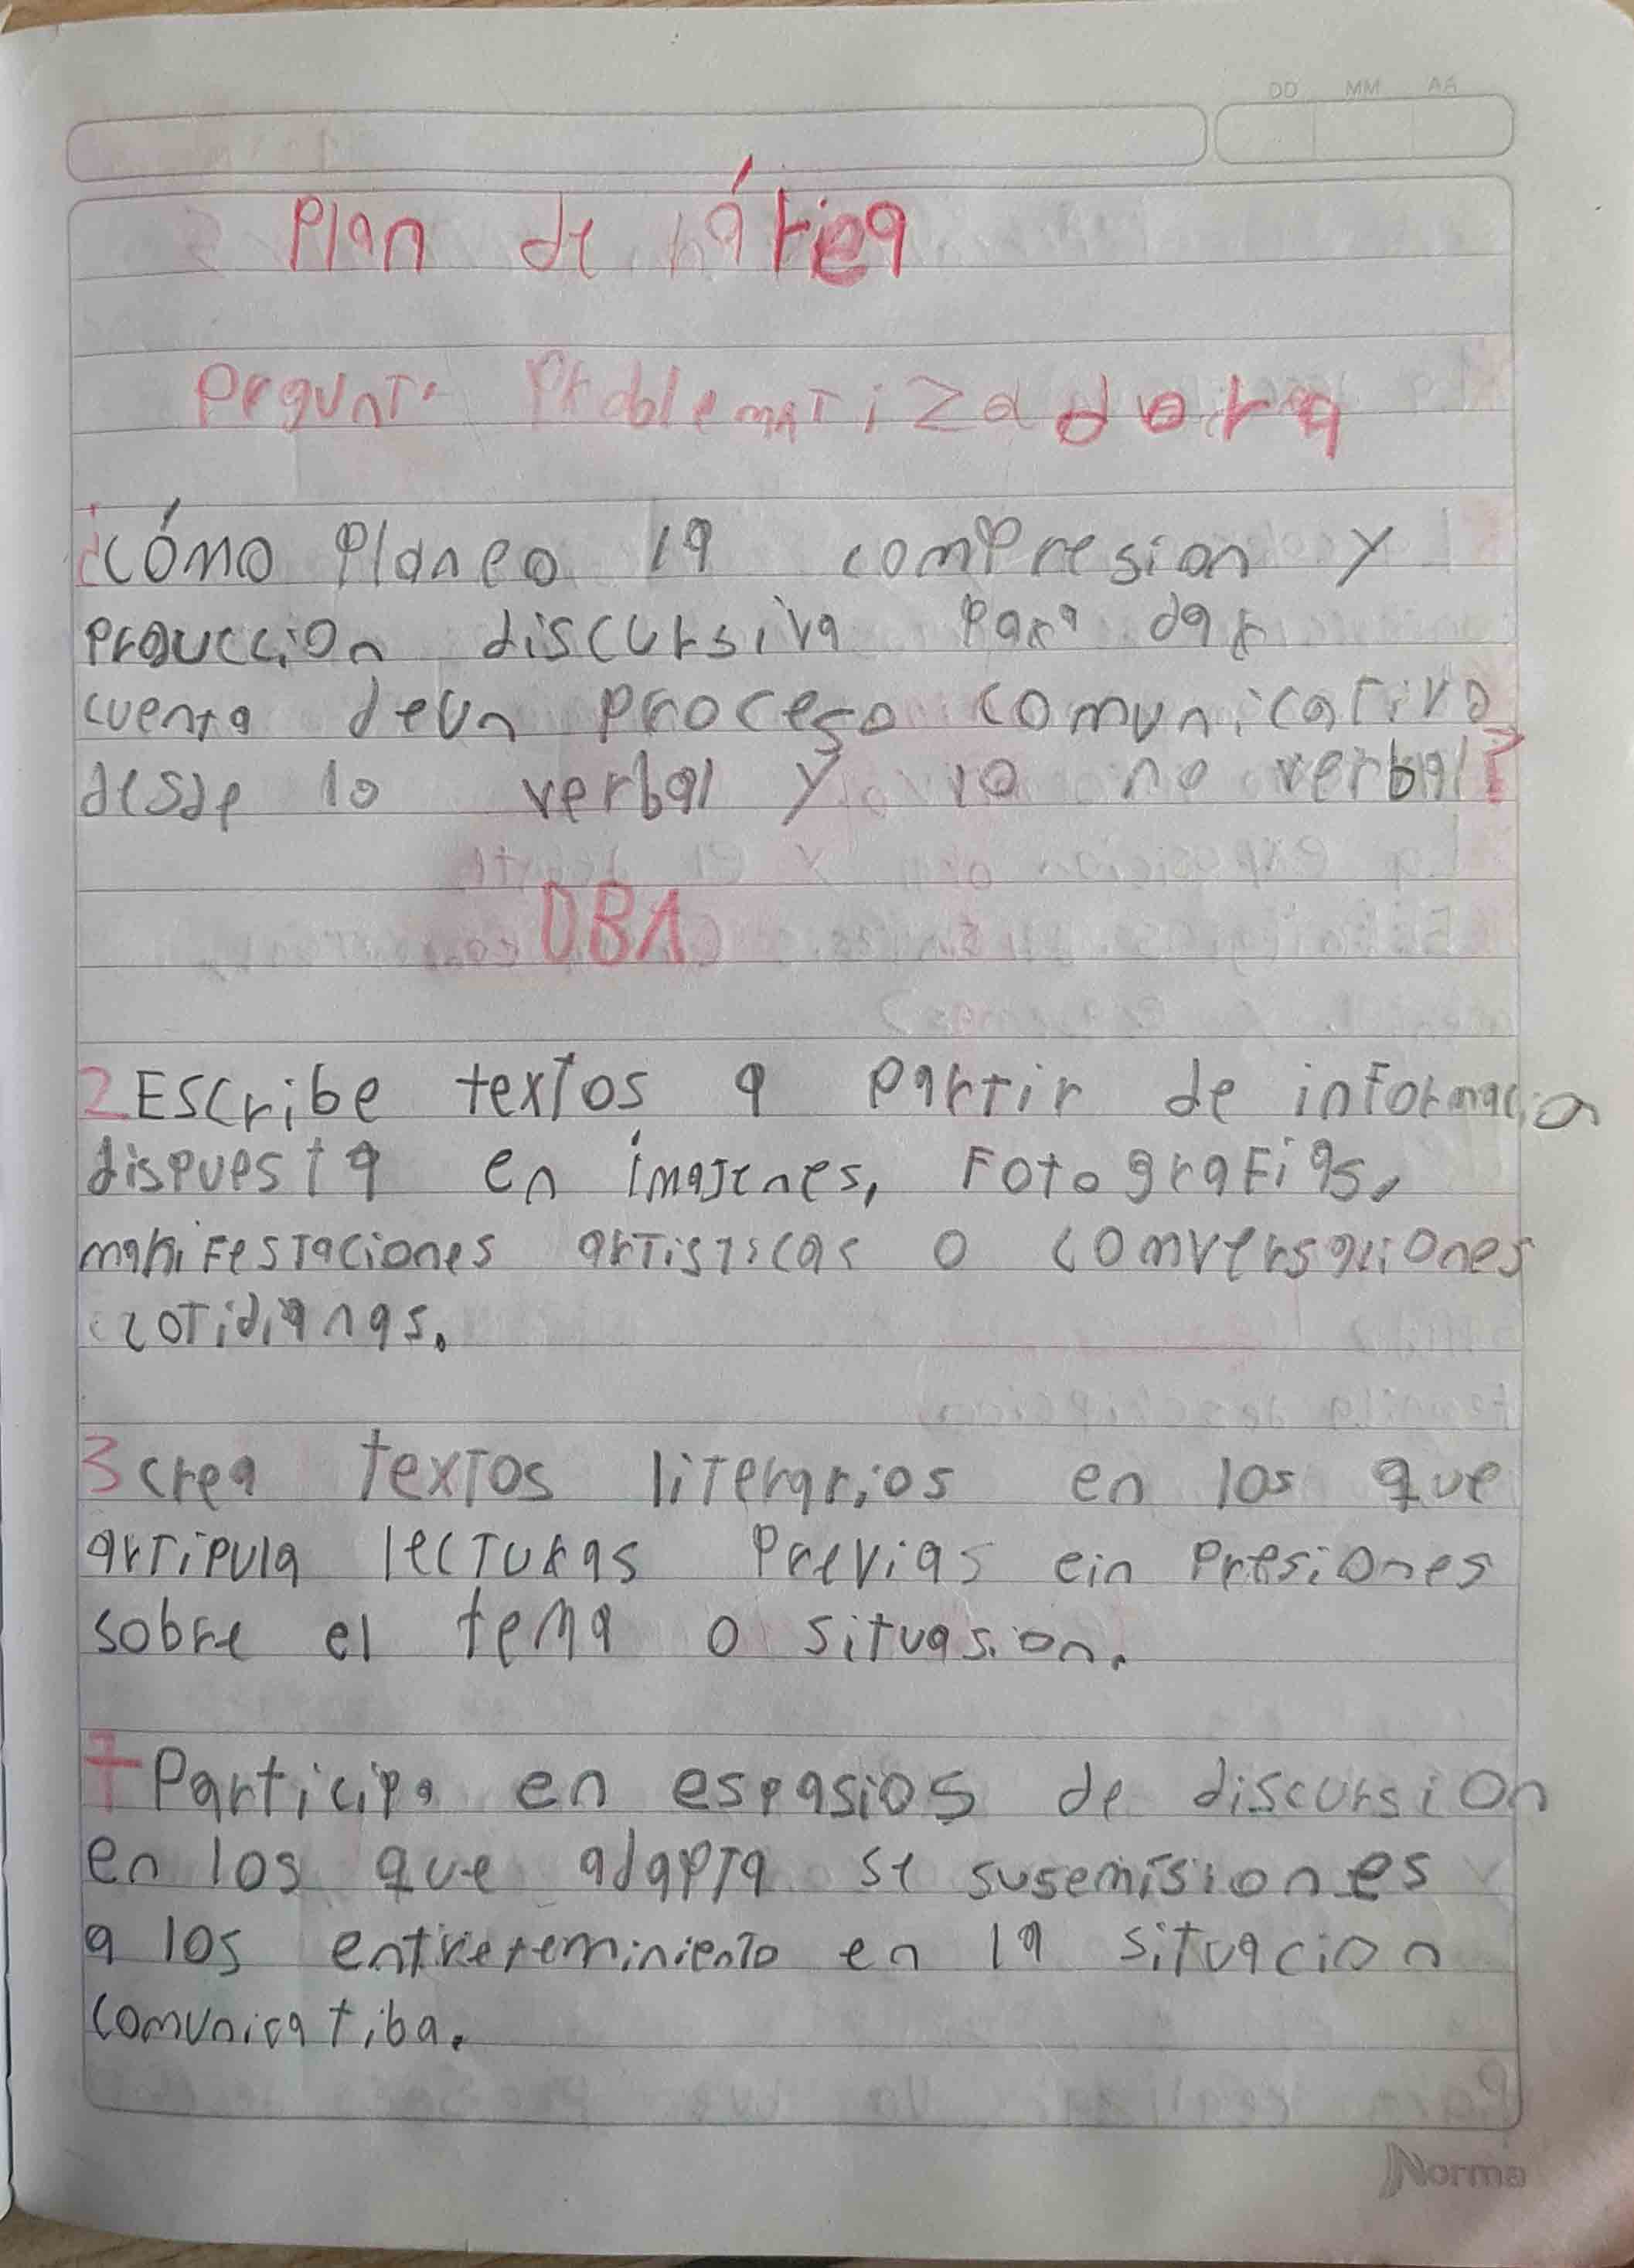 DD MM AA
Plan de área
Pregunta Problematizadora
¿Cómo Planeo la compresion y
producción discursiva Para dar
cuenta deun proceso comunicativo
desde lo verbal y lo no verbal?
DBA
2 Escribe textos a Partir de informacion
dispuesta en imajenes, Fotografias,
manifestaciones artisticas o comversaciones
cotidianas.
3 crea textos literarios en los que
artipula lecturas Previas ein Presiones
sobre el tema o situasion.
7 Participa en espasios de discursion
en los que adapta se susemisiones
a los entrereminiento en la situacion
comunicatiba.
Norma